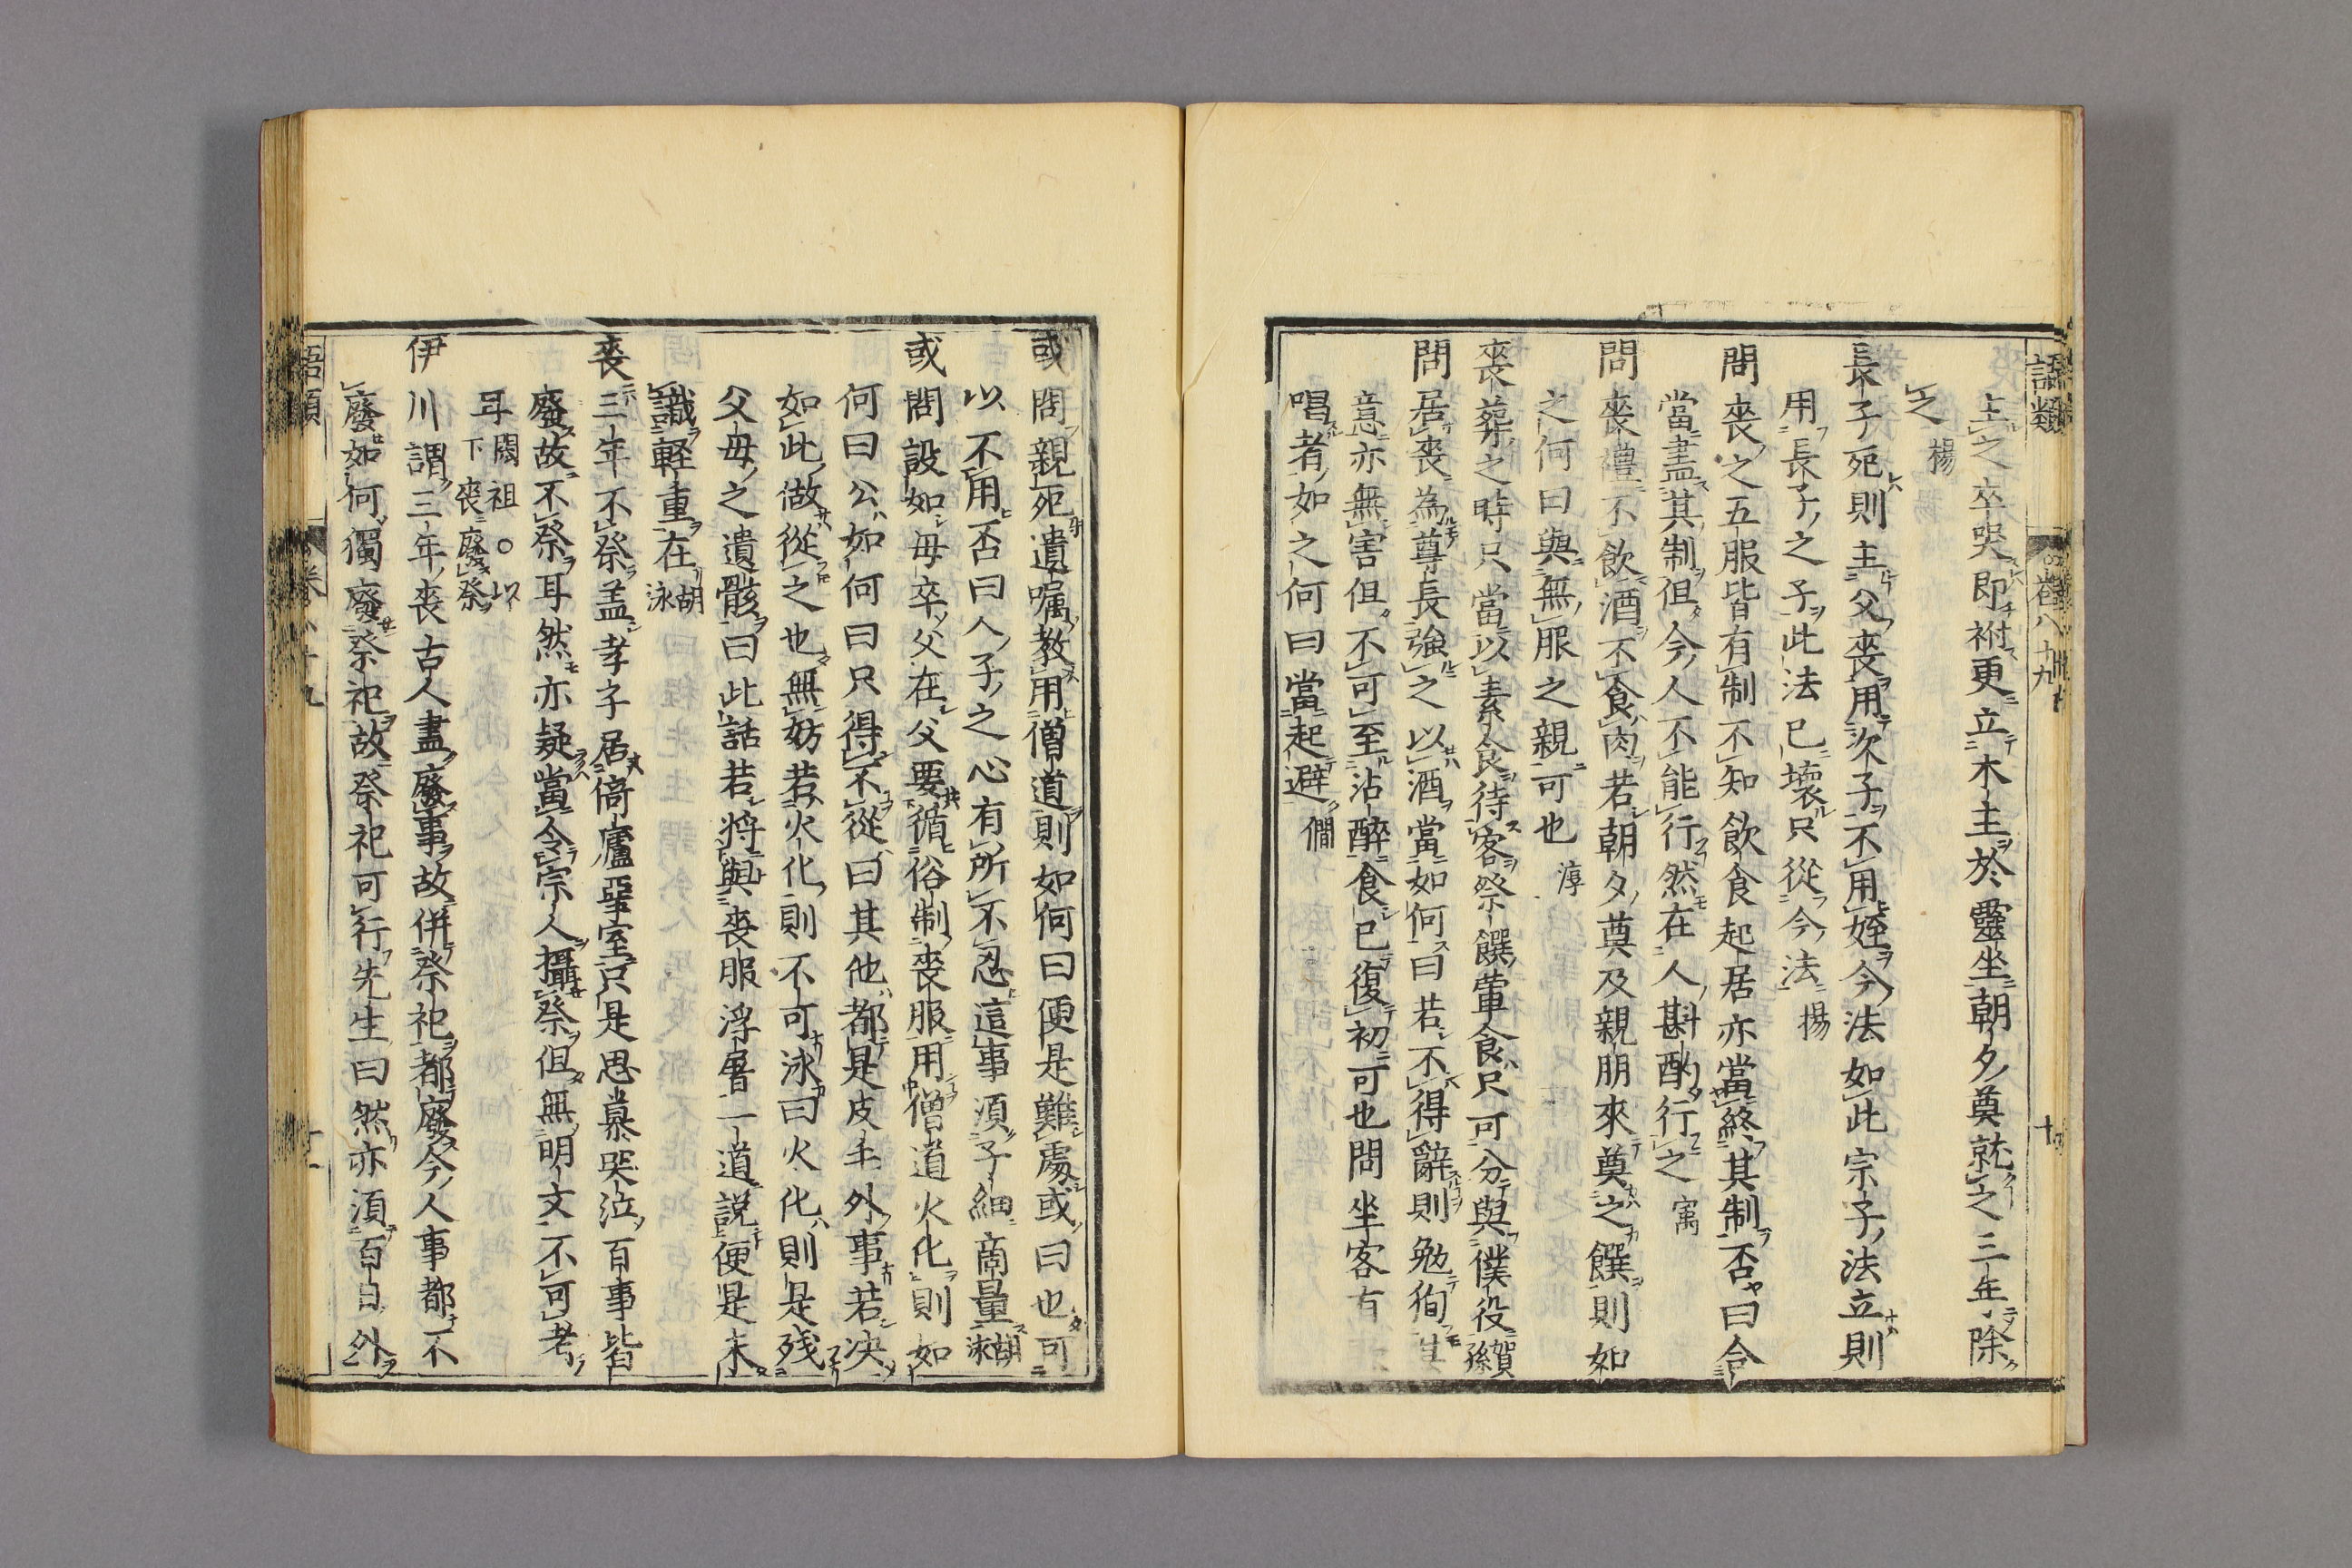 語類 卷八十九 十
主之卒哭即祔更立木主於靈坐朝夕奠就之三年除
之 楊
長子死則主父喪用次子不用姪今法如此宗子法立則
用長子之子此法已壞只從今法 揚
問喪之五服皆有制不知飲食起居亦當終其制否曰合
當盡其制但今人不能行然在人斟酌行之 㝢
問喪禮不飲酒不食肉若朝夕奠及親朋來奠之饌則如
之何曰與無服之親可也 淳
喪葬之時只當以素食待客祭饌葷食只可分與僕役 賀孫
問居喪為尊長強之以酒當如何曰若不得辭則勉徇其
意亦無害但不可至沾醉食已復初可也問坐客有
唱者如之何曰當起避 僩
或問親死遺嘱教用僧道則如何曰便是難處或曰也可
以不用否曰人子之心有所不忍這事須子細商量 胡泳
或問設如母卒父在父要循俗制喪服用僧道火化則如
何曰公如何曰只得不從曰其他都是皮毛外事若決
如此做從之也無妨若火化則不可泳曰火化則是殘
父母之遺骸曰此話若將與喪服浮屠一道說便是未
識軽重在 胡泳
喪三年不祭盖孝子居倚廬堊室只是思慕哭泣百事皆
廢故不祭耳然亦疑當令宗人攝祭但無明文不可考
耳 閎祖○以下喪廢祭
伊川謂三年喪古人盡廢事故併祭祀都廢今人事都不
廢如何獨廢祭祀故祭祀可行先生曰然亦須百日外
語類 卷八十九 十一